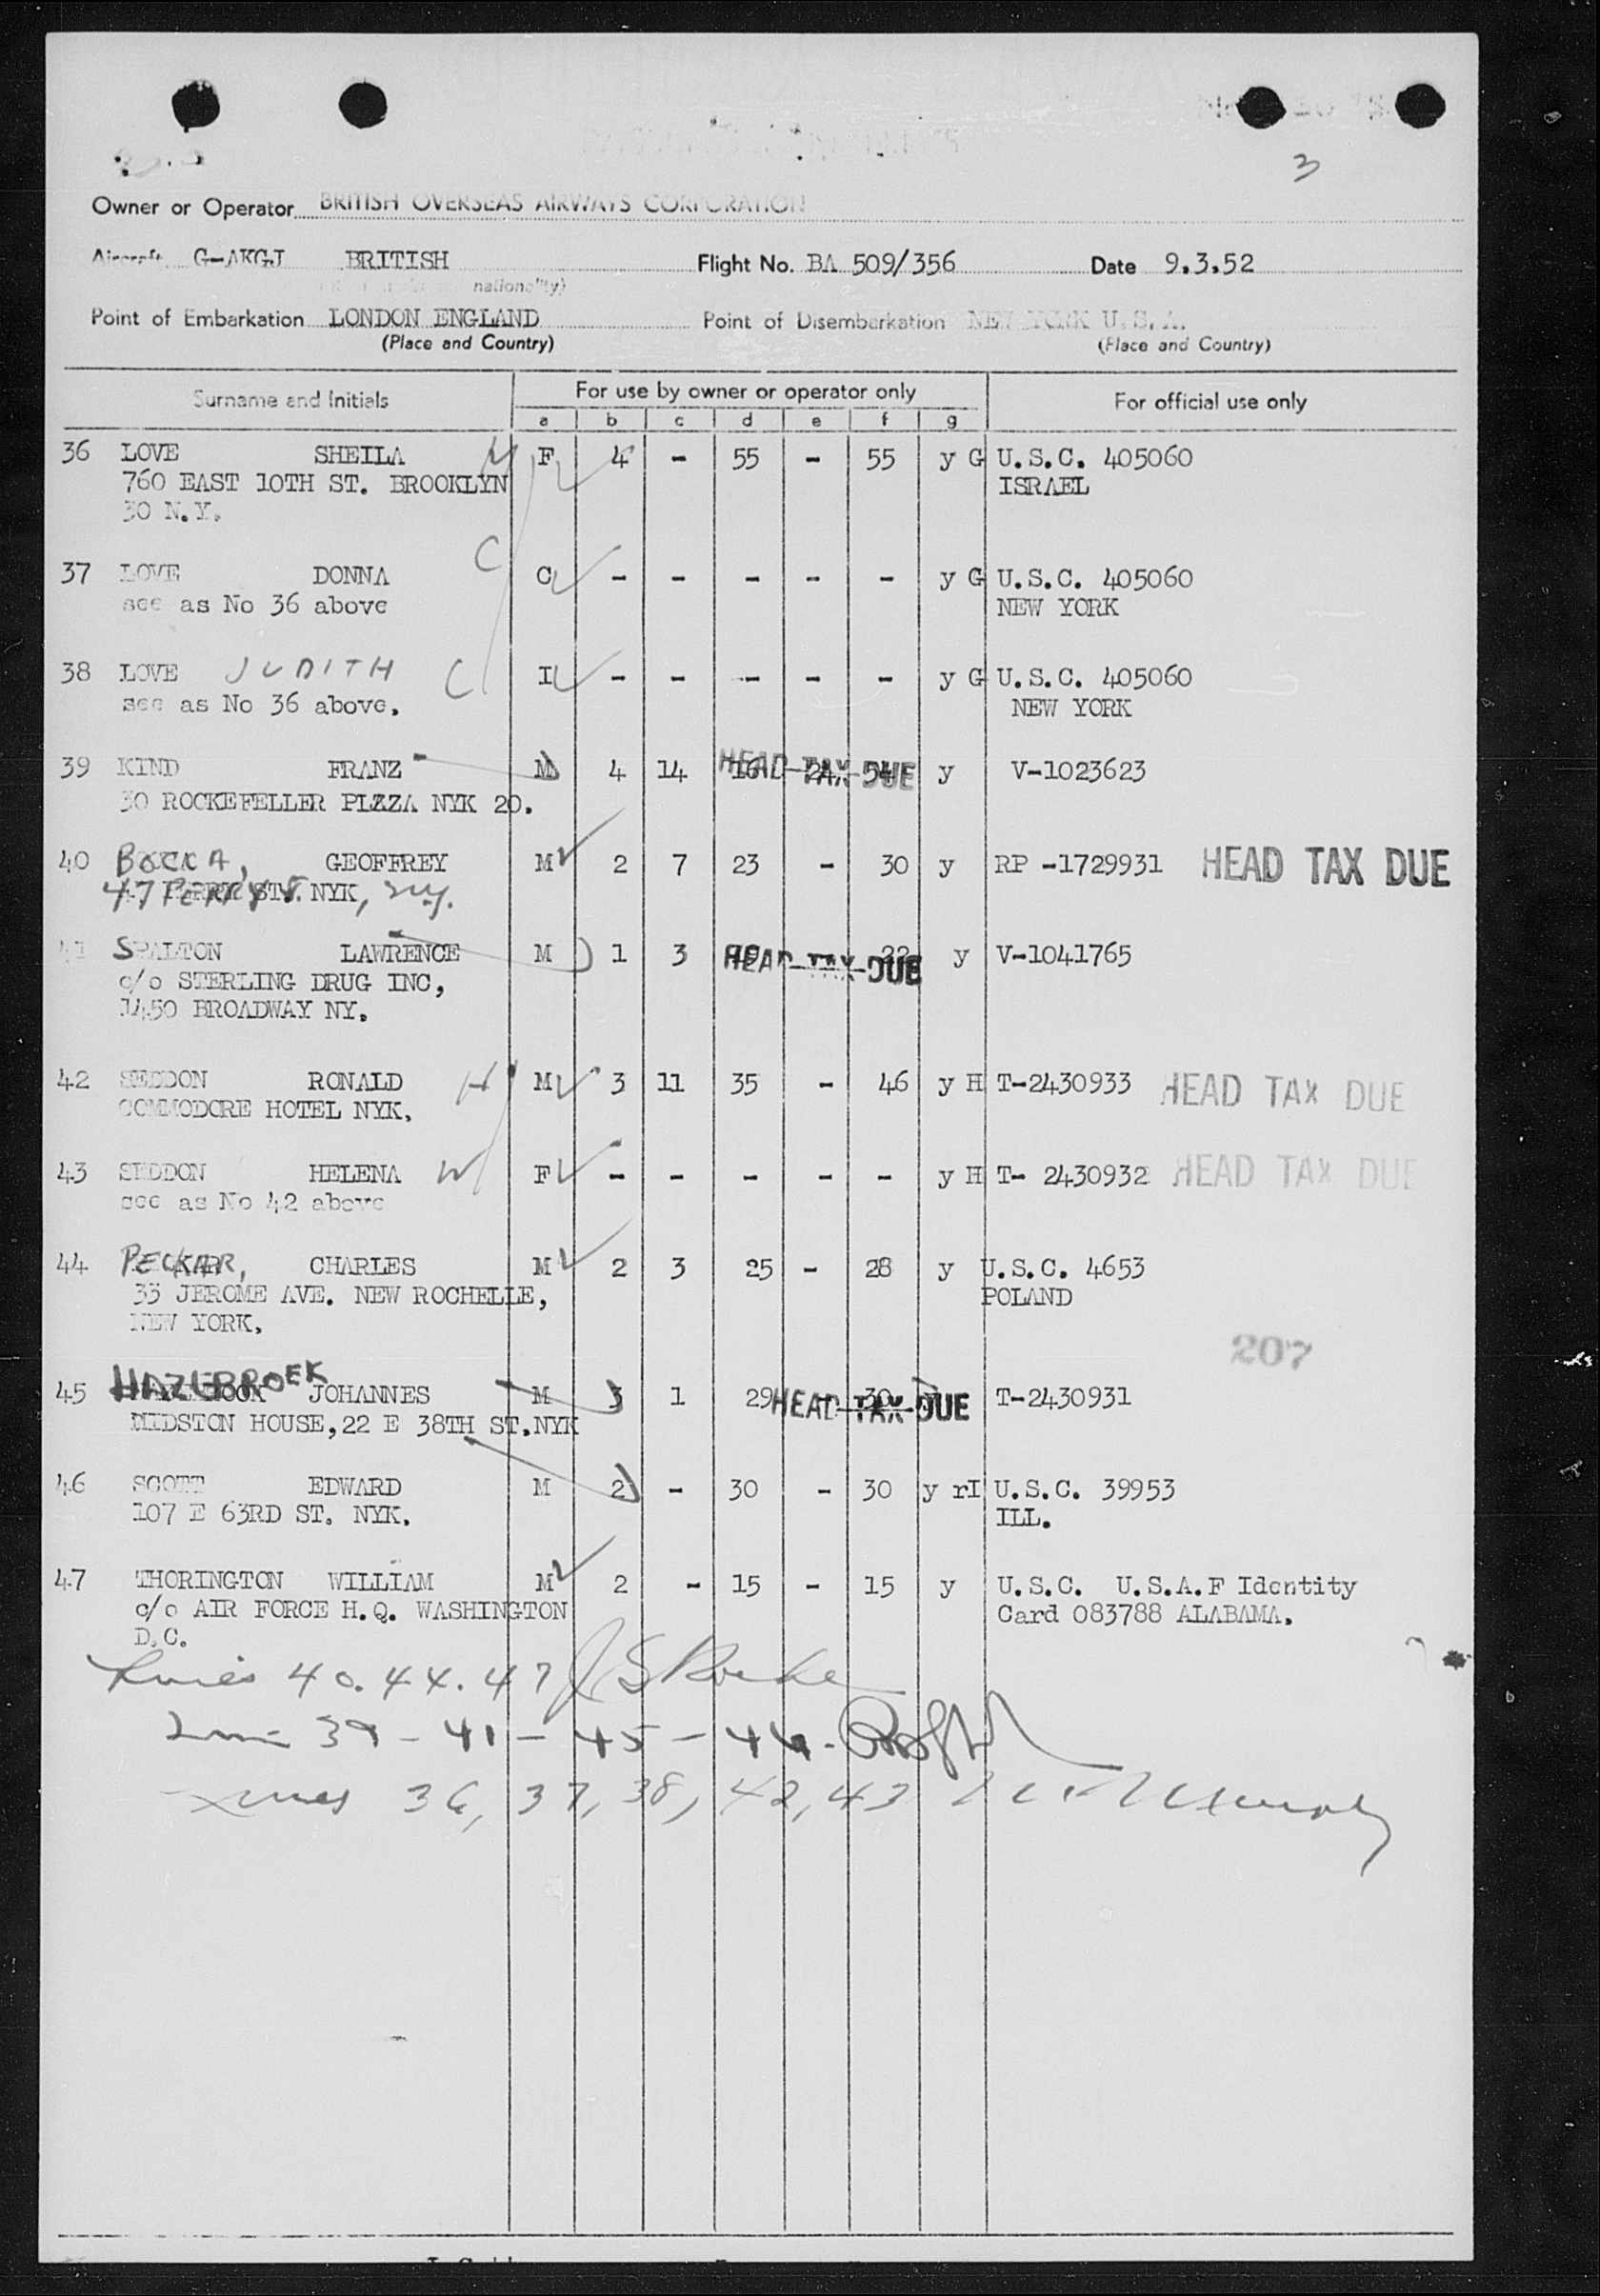 3
Owner or Operator BRITISH OVERSEAS AIRWAYS CORPORATION
Aircraft G-AKGJ BRITISH Flight No. BA 509/356 Date 9.3.52
nationality)
Point of Embarkation LONDON ENGLAND Point of Disembarkation NEW YORK U.S.A.
(Place and Country) (Place and Country)
Surname and Initials For use by owner or operator only For official use only
a b c d e f g
36 LOVE SHEILA F 4 - 55 - 55 y G U.S.C. 405060
760 EAST 10TH ST. BROOKLYN ISRAEL
30 N.Y.
37 LOVE DONNA C C - - - - - y G U.S.C. 405060
see as No 36 above NEW YORK
38 LOVE JUDITH C I - - - - - y G U.S.C. 405060
see as No 36 above. NEW YORK
39 KIND FRANZ M 4 14 HEAD TAX DUE y V-1023623
30 ROCKEFELLER PLAZA NYK 20.
40 BOCCA, GEOFFREY M 2 7 23 - 30 y RP -1729931 HEAD TAX DUE
47 PERRY ST. NYK, n.y.
41 SPALTON LAWRENCE M 1 3 19 HEAD TAX DUE 22 y V-1041765
c/o STERLING DRUG INC,
1450 BROADWAY NY.
42 SEDDON RONALD H M 3 11 35 - 46 y H T-2430933 HEAD TAX DUE
COMMODORE HOTEL NYK.
43 SEDDON HELENA W F - - - - - y H T- 2430932 HEAD TAX DUE
see as No 42 above
44 PECKAR, CHARLES M 2 3 25 - 28 y U.S.C. 4653
33 JEROME AVE. NEW ROCHELLE, POLAND
NEW YORK.
207
45 HAZEBROEK JOHANNES M 3 1 29 HEAD TAX DUE 30 T-2430931
MIDSTON HOUSE,22 E 38TH ST.NYK
46 SCOTT EDWARD M 2 - 30 - 30 y rI U.S.C. 39953
107 E 63RD ST. NYK. ILL.
47 THORINGTON WILLIAM M 2 - 15 - 15 y U.S.C. U.S.A.F Identity
c/o AIR FORCE H.Q. WASHINGTON Card 083788 ALABAMA.
D.C.
Lines 40. 44. 47
Line 39 - 41 - 45 - 46.
Lines 36, 37, 38, 42, 43